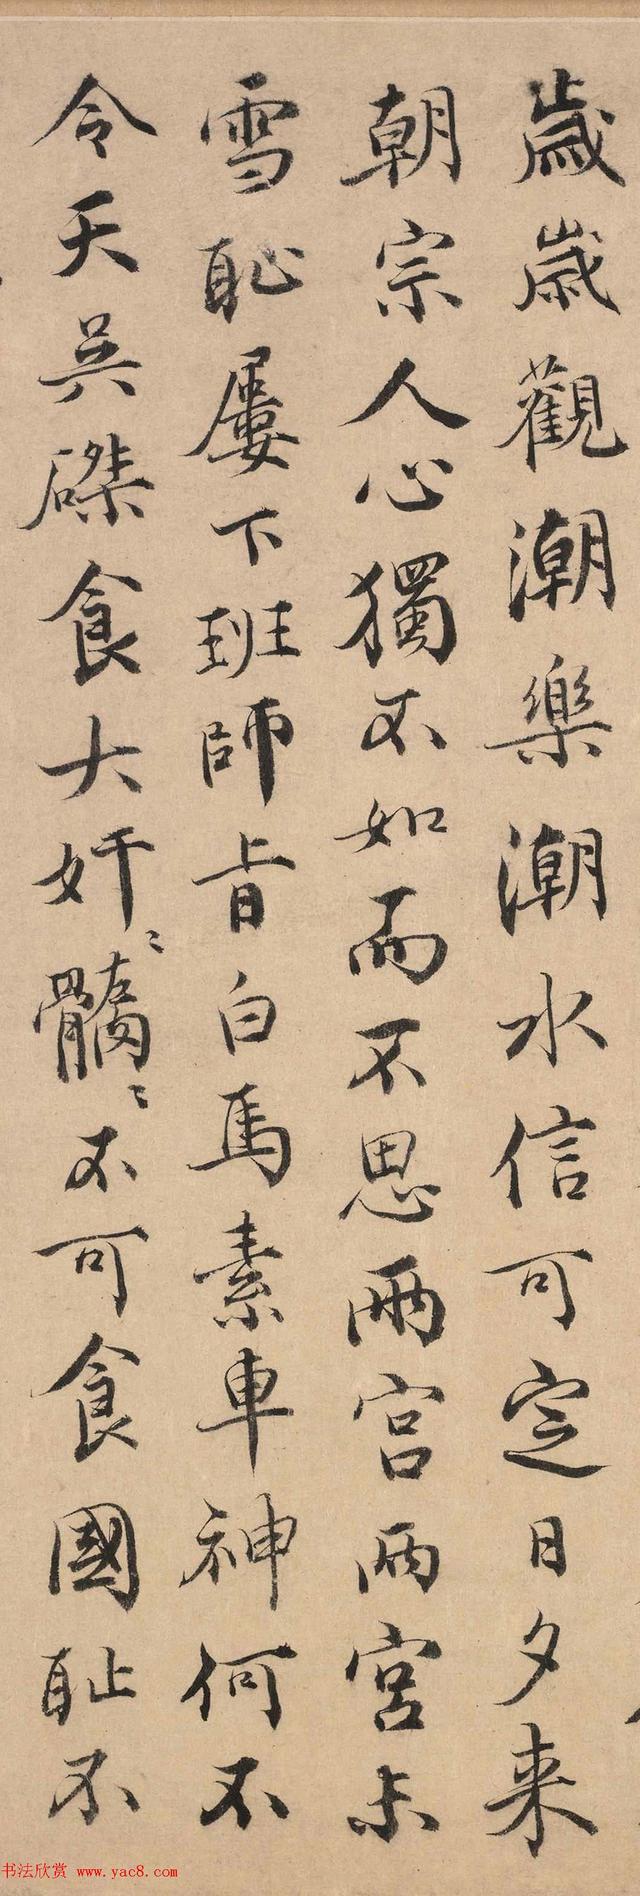 歲歲觀潮樂潮水信可定日夕来
朝宗人心獨不如而不思兩宮兩宮未
雪恥屢下班師旨白馬素車神何不
令天吴磔食大奸〻髓〻不可食國耻不
书法欣赏 www.yac8.com